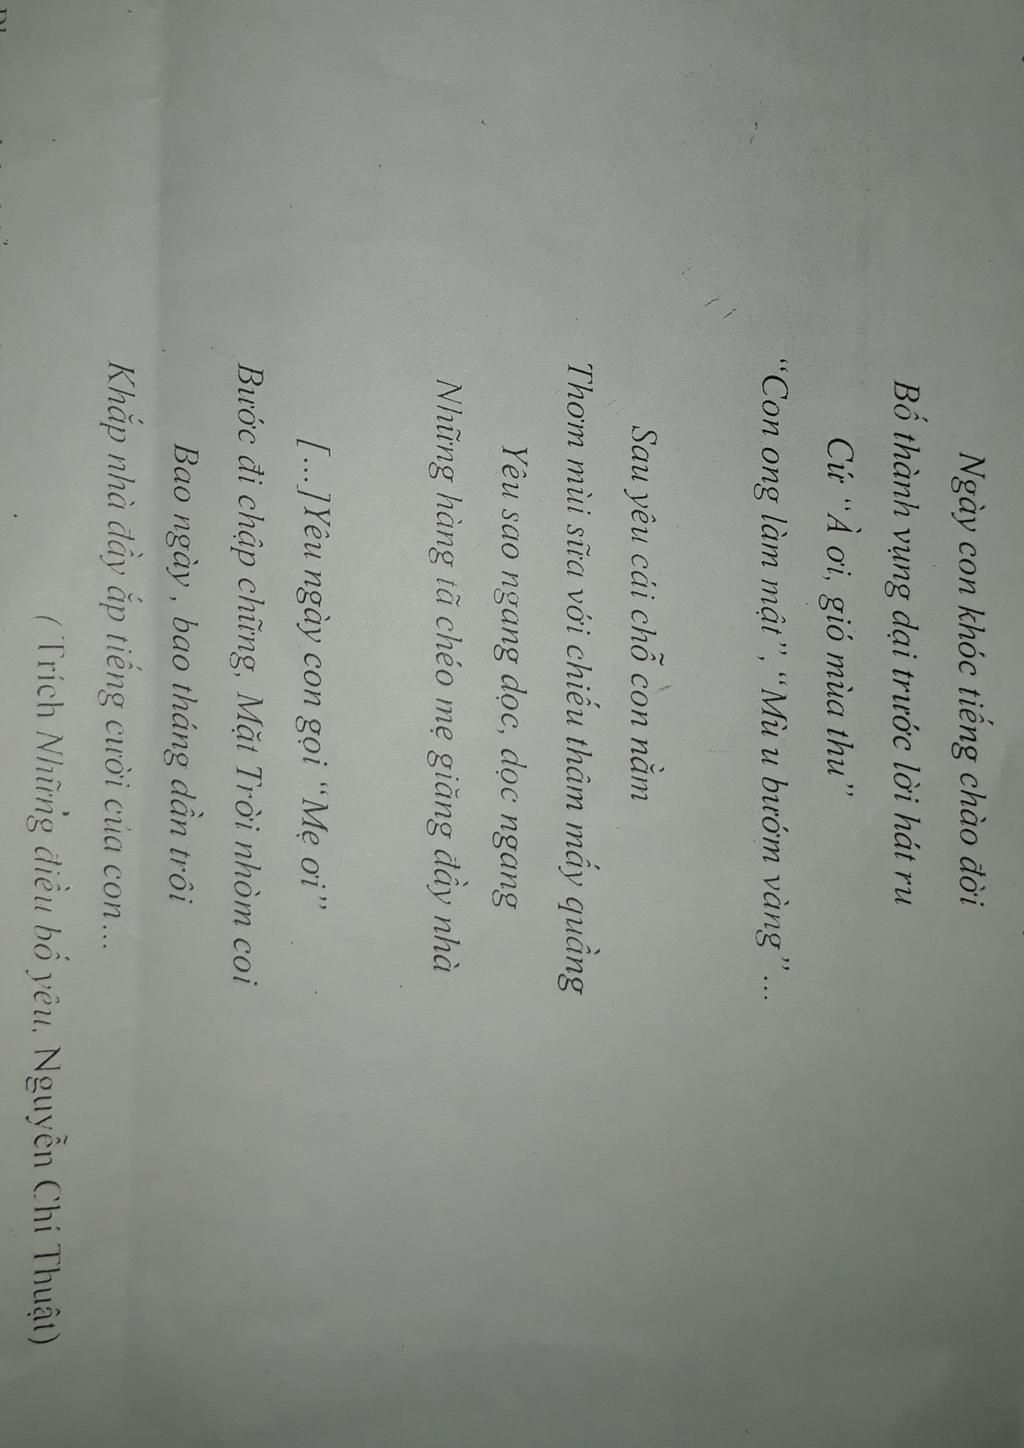 Ngày con khóc tiếng chào đời
Bố thành vụng dại trước lời hát ru
Cứ “À ơi, gió mùa thu”
“Con ong làm mật”, “Mù u bướm vàng”…
Sau yêu cái chỗ con nằm
Thơm mùi sữa với chiếu thâm mấy quầng
Yêu sao ngang dọc, dọc ngang
Những hàng tã chéo mẹ giăng đầy nhà
[...]Yêu ngày con gọi “Mẹ ơi”
Bước đi chập chững, Mặt Trời nhòm coi
Bao ngày , bao tháng dần trôi
Khắp nhà đầy ắp tiếng cười của con…
(Trích Những điều bố yêu, Nguyễn Chí Thuật)